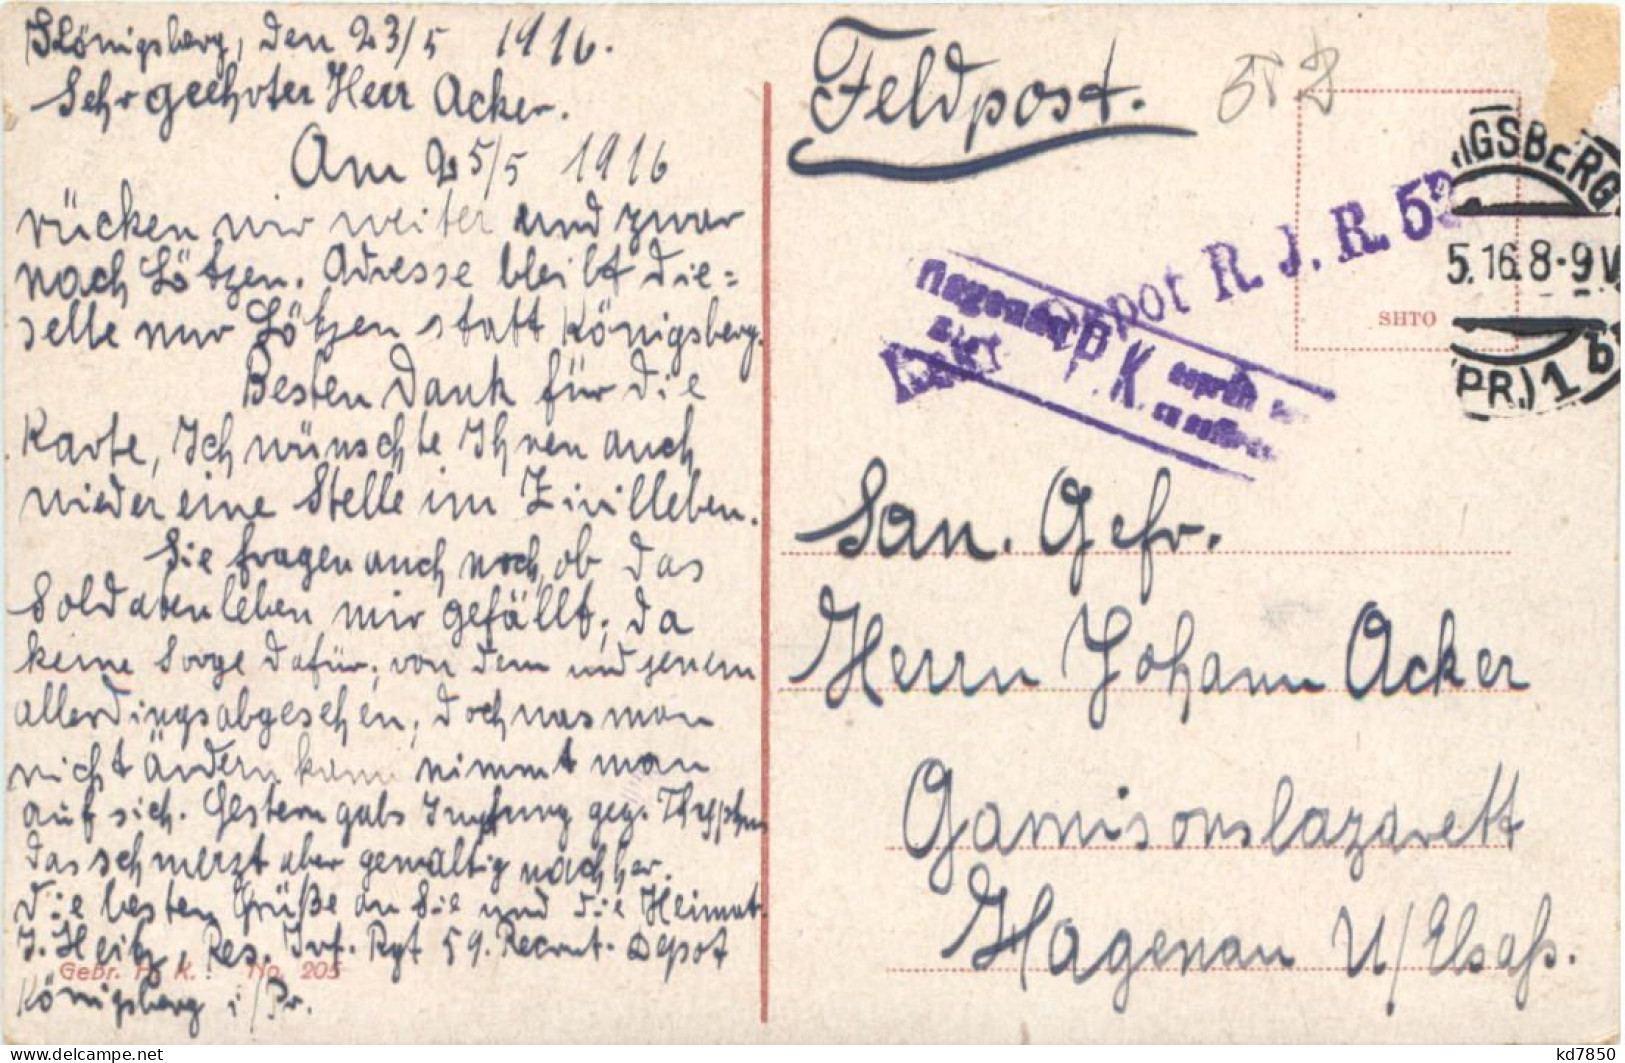 Königsberg, den 23/5 1916.
Sehr geehrter Herr Acker.
Am 25/5 1916
rücken wir weiter und zwar
nach Lötzen. Adresse bleibt die=
selbe nur Lötzen statt Königsberg.
Besten Dank für die
Karte, Ich wünschte Ihnen auch
wieder eine Stelle im Zivilleben.
Sie fragen auch noch, ob das
Soldatenleben mir gefällt, da
keine Sorge dafür, von dem und jenem
allerdings abgesehen, doch was man
nicht ändern kann nimmt man
auf sich. Gestern gabs Impfung geg. Thyphus
das schmerzt aber gewaltig nachher.
Die besten Grüße an Sie und die Heimat.
J. Heitz, Res. Inf. Rgt 59. Recrut. Depot
Königsberg i/Pr.
Gebr. H. K. No. 205
Feldpost.
Depot R. J. R. 59
Hagenau
P.K.
geprüft
SHTO
IGSBERG
5.16.8-9V
(PR.) 1 b
San. Gefr.
Herrn Johann Acker
Garnisonslazarett
Hagenau U/Elsaß.
kd7850